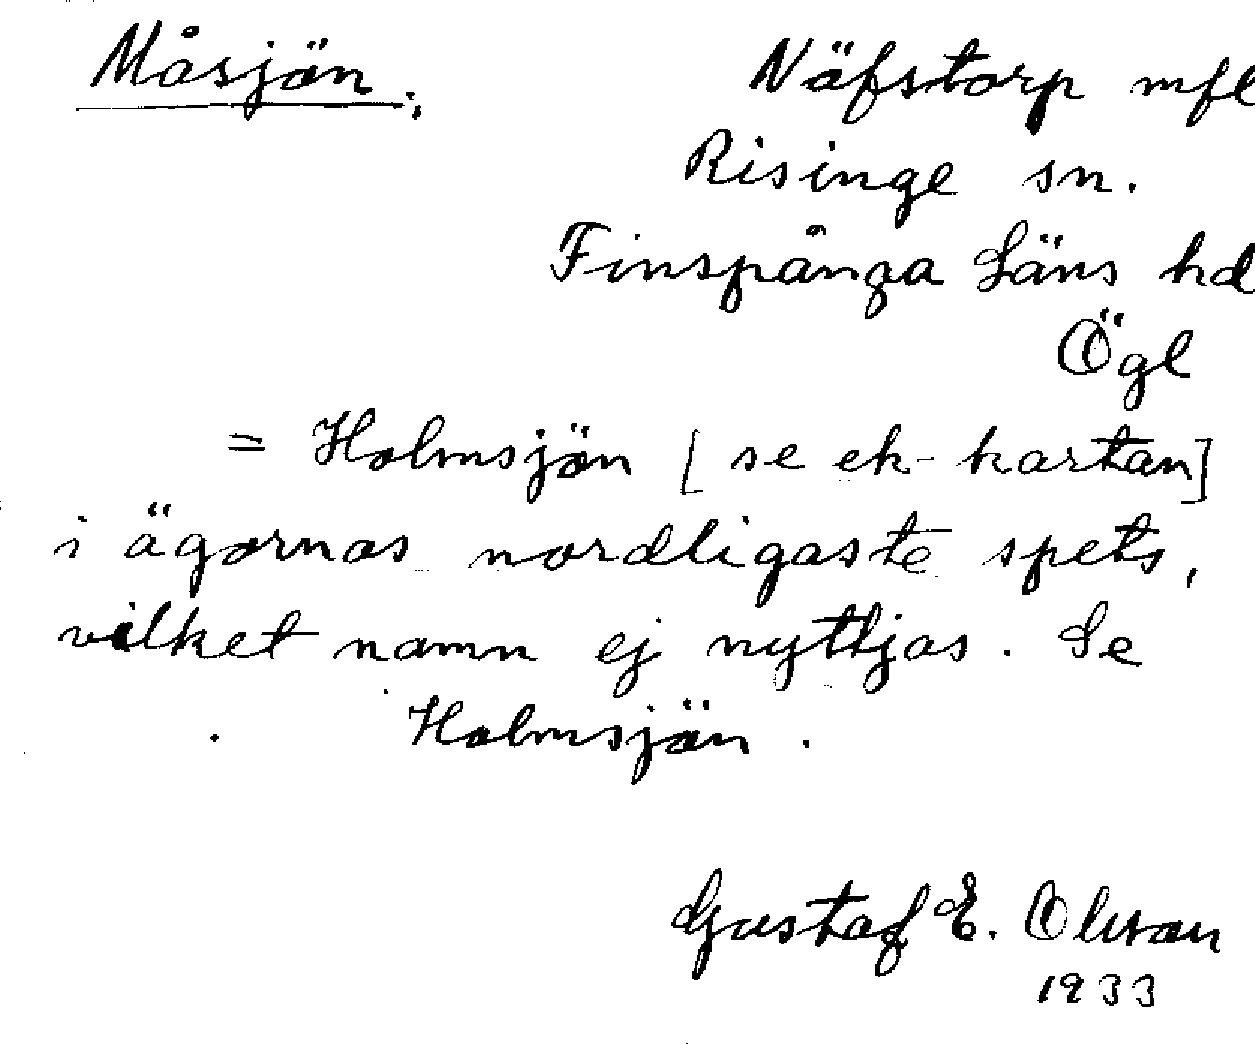 Måsjön.; Näfstorp mfl
Risinge sn.
Finspånga Läns hd
Ögl
= Holmsjön [ se ek-kartan]
i ägornas nordligaste spets,
vilket namn ej nyttjas. Se
Holmsjön.
Gustaf E. Olsson
1933